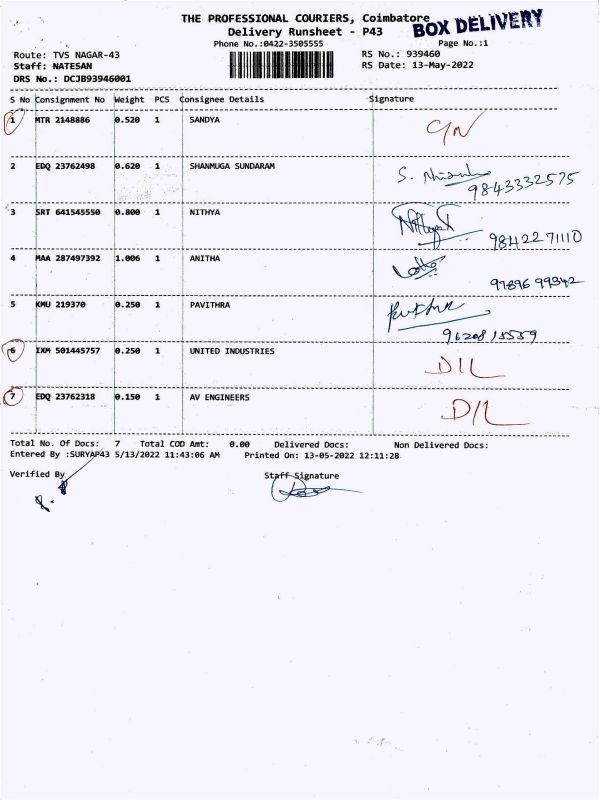 THE PROFESSIONAL COURIERS, Coimbatore
BOX DELIVERY
Delivery Runsheet - P43
Phone No.:0422-3505555
Page No.:1
Route: TVS NAGAR-43
RS No.: 939460
Staff: NATESAN
RS Date: 13-May-2022
DRS No.: DCJB93946001
S No Consignment No Weight PCS Consignee Details Signature
1 MTR 2148886 0.520 1 SANDYA
2 EDQ 23762498 0.620 1 SHANMUGA SUNDARAM
9843332575
3 SRT 641545550 0.800 1 NITHYA
98422 71110
4 MAA 287497392 1.006 1 ANITHA
97896 99342
5 KMU 219370 0.250 1 PAVITHRA
6 IXM 501445757 0.250 1 UNITED INDUSTRIES D/L
7 EDQ 23762318 0.150 1 AV ENGINEERS D/L
Total No. Of Docs: 7 Total COD Amt: 0.00 Delivered Docs: Non Delivered Docs:
Entered By :SURYAP43 5/13/2022 11:43:06 AM Printed On: 13-05-2022 12:11:28
Verified By Staff Signature